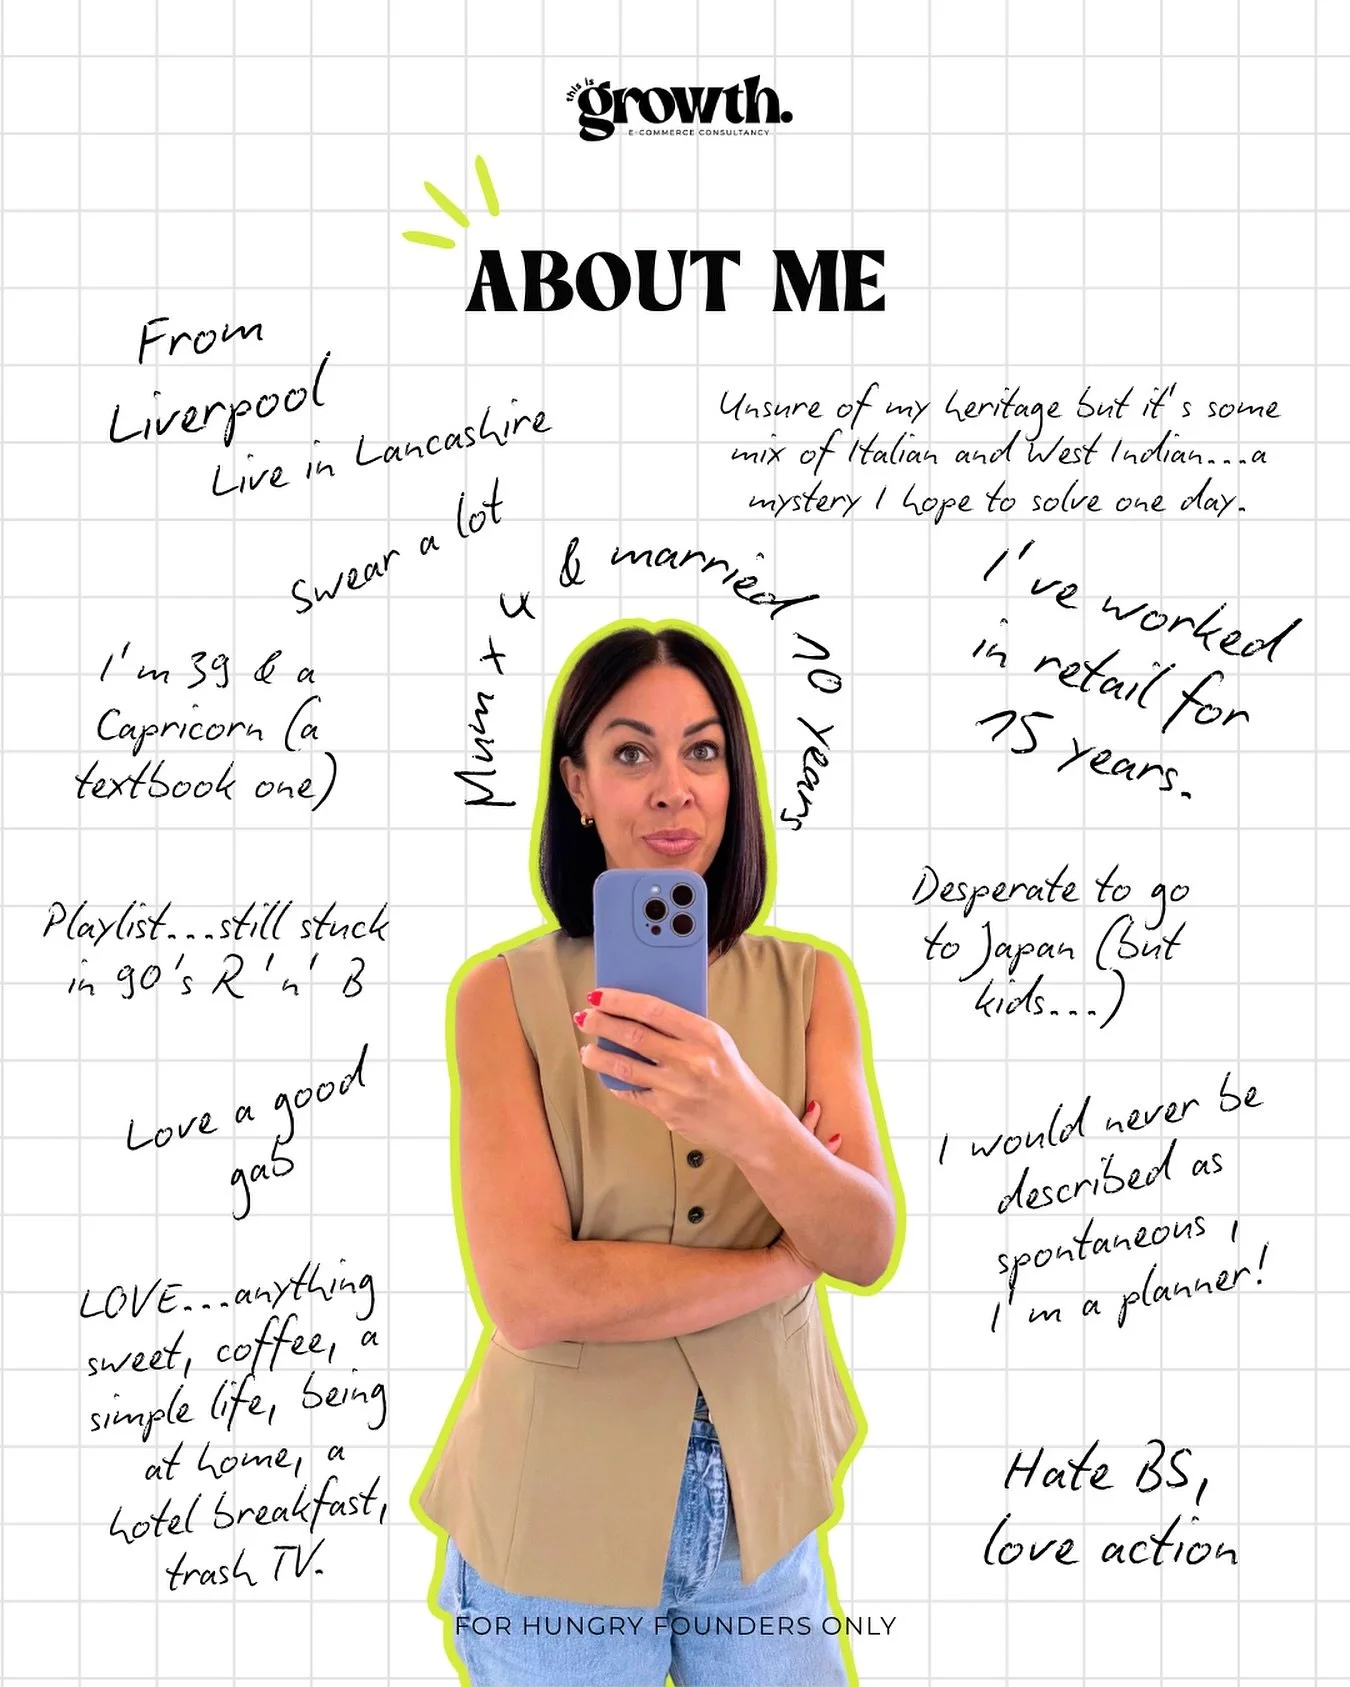 this is
growth.
E-COMMERCE CONSULTANCY
ABOUT ME
From
Liverpool
Live in Lancashire
Swear a lot
Unsure of my heritage but it's some
mix of Italian and West Indian...a
mystery I hope to solve one day.
Mum x 4 & married 10 years
I've worked
in retail for
15 years.
I'm 39 & a
Capricorn (a
textbook one)
Playlist...still stuck
in 90's R 'n' B
Desperate to go
to Japan (but
kids...)
Love a good
gab
I would never be
described as
spontaneous,
I'm a planner!
LOVE...anything
sweet, coffee, a
simple life, being
at home, a
hotel breakfast,
trash TV.
Hate BS,
love action
FOR HUNGRY FOUNDERS ONLY